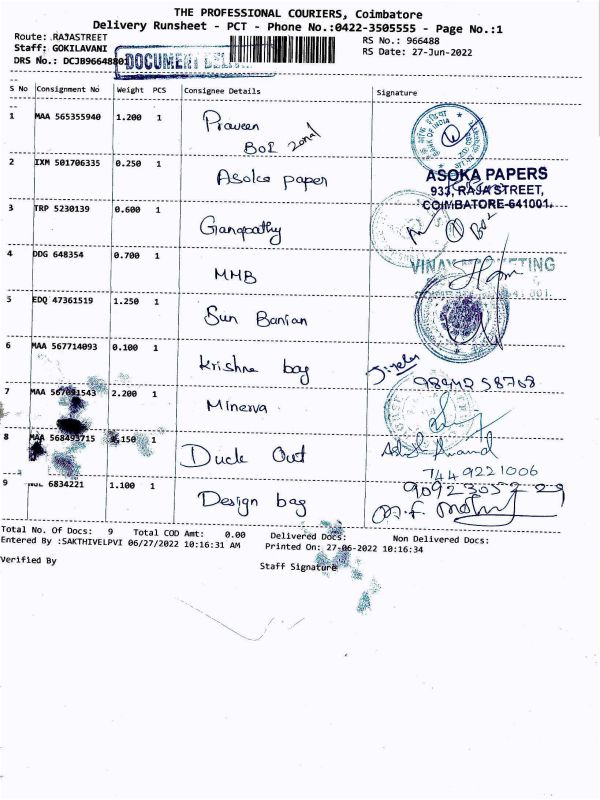 THE PROFESSIONAL COURIERS, Coimbatore
Delivery Runsheet - PCT - Phone No.:0422-3505555 - Page No.:1
Route: RAJASTREET
RS No.: 966488
Staff: GOKILAVANI
RS Date: 27-Jun-2022
DRS No.: DCJB966488
DOCUMENT
S No Consignment No Weight PCS Consignee Details Signature
1 MAA 565355940 1.200 1 Praveen
BOI zonal
2 IXM 501706335 0.250 1 Asoka paper
ASOKA PAPERS
933, RAJA STREET,
COIMBATORE-641001.
3 TRP 5230139 0.600 1 Ganapathy
4 DDG 648354 0.700 1 MMB
5 EDQ 47361519 1.250 1 Sun Banian
6 MAA 567714093 0.100 1 Krishna bag
7 MAA 2.200 1 Minerva
8 MAA 1 Duck Out
7449221006
9 6834221 1.100 1 Design bag
Total No. Of Docs: 9 Total COD Amt: 0.00 Delivered Docs: Non Delivered Docs:
Entered By :SAKTHIVELPVI 06/27/2022 10:16:31 AM Printed On: 27-06-2022 10:16:34
Verified By
Staff Signature